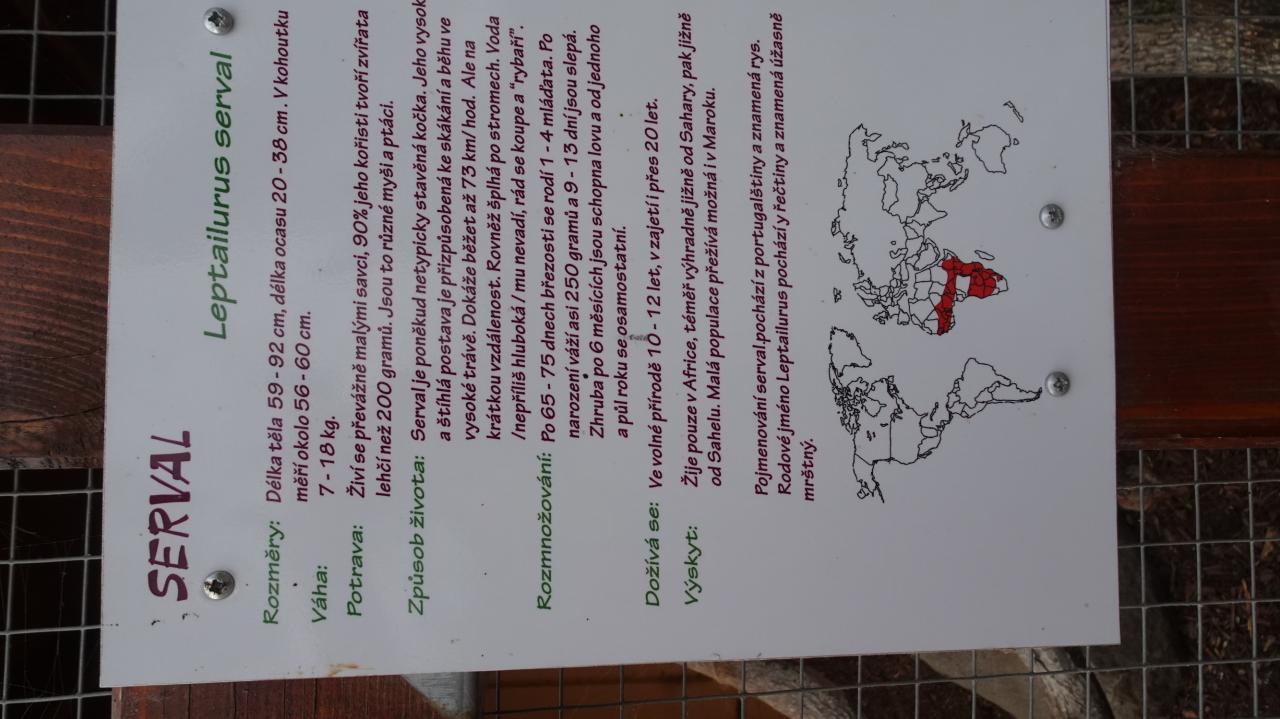 SERVAL
Leptailurus serval
Rozměry: Délka těla 59 - 92 cm, délka ocasu 20 - 38 cm. V kohoutku
měří okolo 56 - 60 cm.
Váha: 7 - 18 kg.
Potrava: Živí se převážně malými savci, 90% jeho kořisti tvoří zvířata
lehčí než 200 gramů. Jsou to různé myši a ptáci.
Způsob života: Serval je poněkud netypicky stavěná kočka. Jeho vysok
a štíhlá postava je přizpůsobená ke skákání a běhu ve
vysoké trávě. Dokáže běžet až 73 km/ hod. Ale na
krátkou vzdálenost. Rovněž šplhá po stromech. Voda
/nepříliš hluboká / mu nevadí, rád se koupe a "rybaří".
Rozmnožování: Po 65 - 75 dnech březosti se rodí 1 - 4 mláďata. Po
narození váží asi 250 gramů a 9 - 13 dní jsou slepá.
Zhruba po 6 měsících jsou schopna lovu a od jednoho
a půl roku se osamostatní.
Dožívá se: Ve volné přírodě 10 - 12 let, v zajetí i přes 20 let.
Výskyt: Žije pouze v Africe, téměř výhradně jižně od Sahary, pak jižně
od Sahelu. Malá populace přežívá možná i v Maroku.
Pojmenování serval pochází z portugalštiny a znamená rys.
Rodové jméno Leptailurus pochází y řečtiny a znamená úžasně
mrštný.